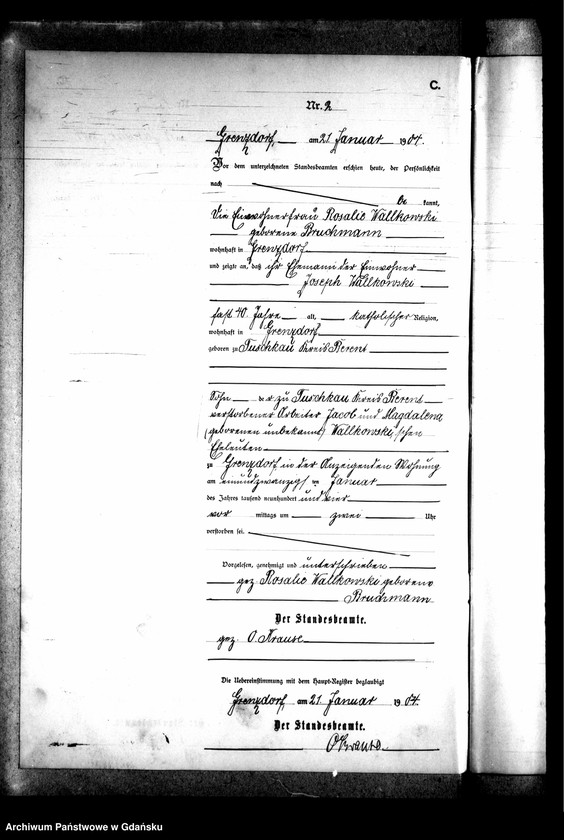 C.
Nr. 2
Grenzdorf, am 21 Januar 1904.
Vor dem unterzeichneten Standesbeamten erschien heute, der Persönlichkeit
nach
be kannt,
die Einwohnerfrau Rosalie Wallkowski
geborene Bruchmann
wohnhaft in Grenzdorf
und zeigte an, daß ihr Ehemann der Einwohner
Joseph Wallkowski
fast 40 Jahre alt, katholischer Religion,
wohnhaft in Grenzdorf
geboren zu Tuschkau Kreis Berent
Sohn der zu Tuschkau Kreis Berent
verstorbener Arbeiter Jacob und Magdalena
(geborenen unbekannt) Wallkowski'schen
Eheleuten
zu Grenzdorf, in der Anzeigenden Wohnung
am einundzwanzigsten Januar
des Jahres tausend neunhundert und vier
vor mittags um zwei Uhr
verstorben sei.
Vorgelesen, genehmigt und unterschrieben
gez. Rosalie Wallkowski geborene
Bruchmann
Der Standesbeamte.
gez. O. Krause
Die Uebereinstimmung mit dem Haupt-Register beglaubigt
Grenzdorf, am 21 Januar 1904.
Der Standesbeamte.
O Krause
Archiwum Państwowe w Gdańsku